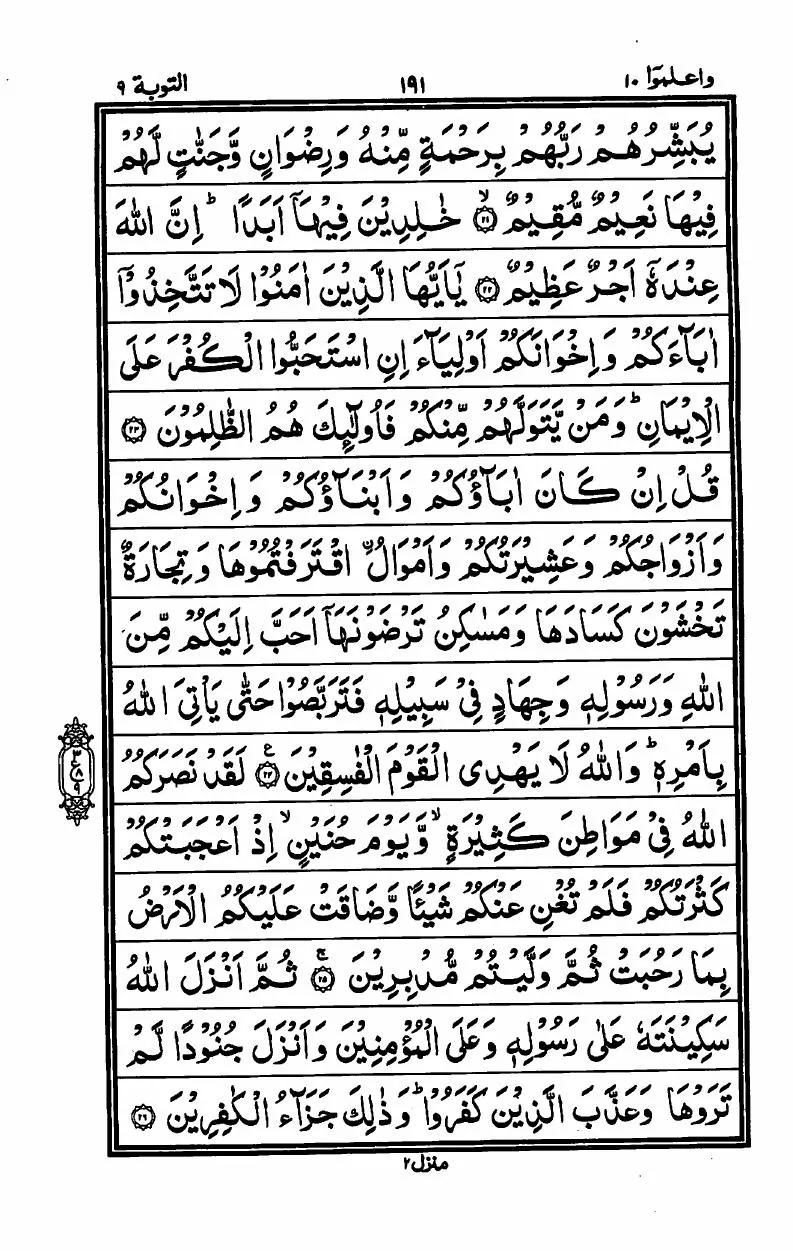 واعلموٓا ١٠ ١٩١ التوبة ٩
يُبَشِّرُهُمْ رَبُّهُمْ بِرَحْمَةٍ مِّنْهُ وَرِضْوَانٍ وَّجَنّٰتٍ لَّهُمْ
فِيْهَا نَعِيْمٌ مُّقِيْمٌ ۙ‏﴿۲۱﴾ خٰلِدِيْنَ فِيْهَاۤ اَبَدًا ؕ اِنَّ اللّٰهَ
عِنْدَهٗۤ اَجْرٌ عَظِيْمٌ ﴿۲۲﴾ يٰۤاَيُّهَا الَّذِيْنَ اٰمَنُوْا لَا تَتَّخِذُوْۤا
اٰبَآءَكُمْ وَاِخْوَانَكُمْ اَوْلِيَآءَ اِنِ اسْتَحَبُّوا الْكُفْرَ عَلَى
الْاِيْمَانِ ؕ وَمَنْ يَّتَوَلَّهُمْ مِّنْكُمْ فَاُولٰٓئِكَ هُمُ الظّٰلِمُوْنَ ﴿۲۳﴾
قُلْ اِنْ كَانَ اٰبَآؤُكُمْ وَاَبْنَآؤُكُمْ وَاِخْوَانُكُمْ
وَاَزْوَاجُكُمْ وَعَشِيْرَتُكُمْ وَاَمْوَالُ ۨاقْتَرَفْتُمُوْهَا وَتِجَارَةٌ
تَخْشَوْنَ كَسَادَهَا وَمَسٰكِنُ تَرْضَوْنَهَاۤ اَحَبَّ اِلَيْكُمْ مِّنَ
اللّٰهِ وَرَسُوْلِهٖ وَجِهَادٍ فِيْ سَبِيْلِهٖ فَتَرَبَّصُوْا حَتّٰى يَاْتِيَ اللّٰهُ
بِاَمْرِهٖ ؕ وَاللّٰهُ لَا يَهْدِى الْقَوْمَ الْفٰسِقِيْنَ ﴿۲۴﴾ ع لَقَدْ نَصَرَكُمُ
اللّٰهُ فِيْ مَوَاطِنَ كَثِيْرَةٍ ۙ وَّيَوْمَ حُنَيْنٍ ۙ اِذْ اَعْجَبَتْكُمْ
كَثْرَتُكُمْ فَلَمْ تُغْنِ عَنْكُمْ شَيْـًٔا وَّضَاقَتْ عَلَيْكُمُ الْاَرْضُ
بِمَا رَحُبَتْ ثُمَّ وَلَّيْتُمْ مُّدْبِرِيْنَ ۚ‏﴿۲۵﴾ ثُمَّ اَنْزَلَ اللّٰهُ
سَكِيْنَتَهٗ عَلٰى رَسُوْلِهٖ وَعَلَى الْمُؤْمِنِيْنَ وَاَنْزَلَ جُنُوْدًا لَّمْ
تَرَوْهَا وَعَذَّبَ الَّذِيْنَ كَفَرُوْا ؕ وَذٰلِكَ جَزَآءُ الْكٰفِرِيْنَ ﴿۲۶﴾
٣
ع
٨
٩
منزل ٢